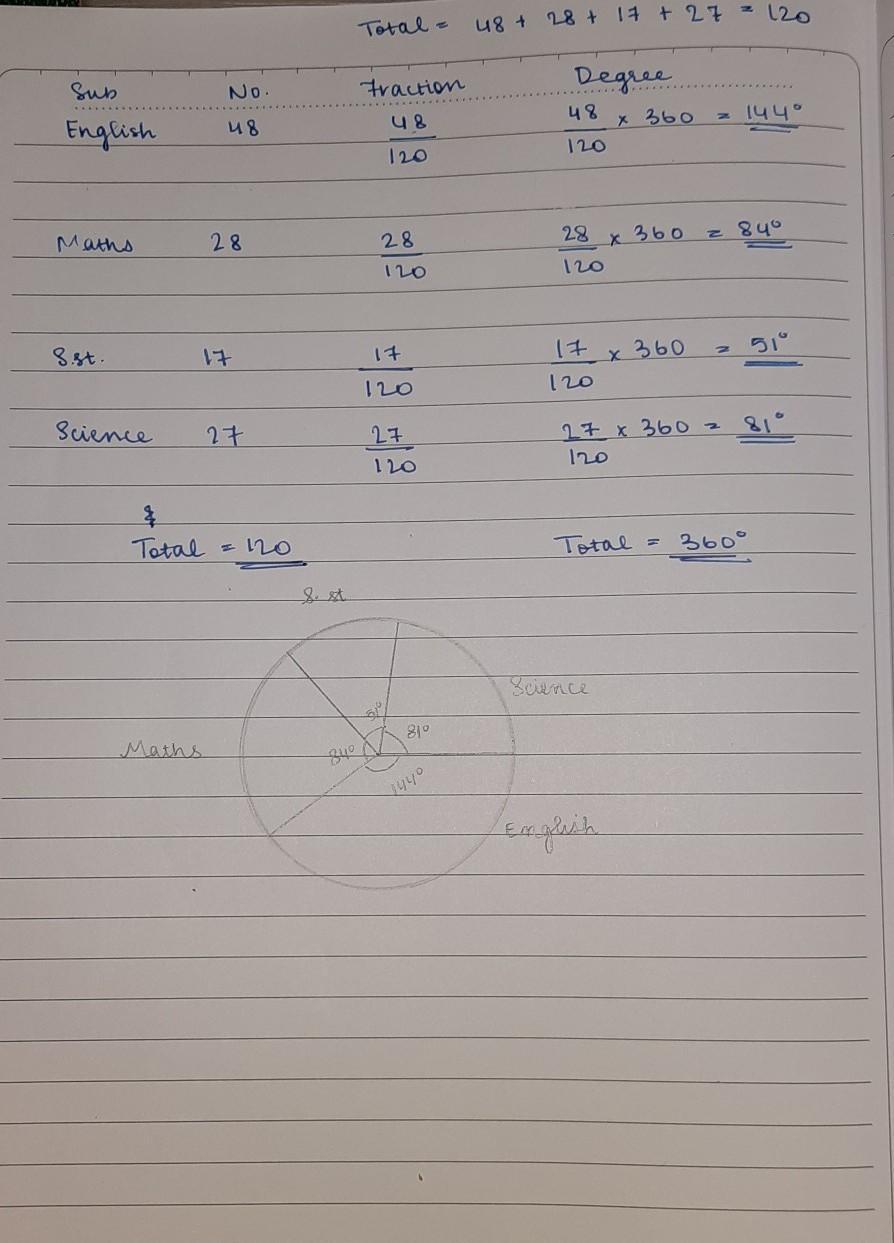 Total = 48 + 28 + 17 + 27 = 120
Sub No. Fraction Degree
English 48 48/120 48/120 x 360 = 144°
Maths 28 28/120 28/120 x 360 = 84°
S.st. 17 17/120 17/120 x 360 = 51°
Science 27 27/120 27/120 x 360 = 81°
Total = 120 Total = 360°
S. st
Science
51°
81°
Maths 84°
144°
English